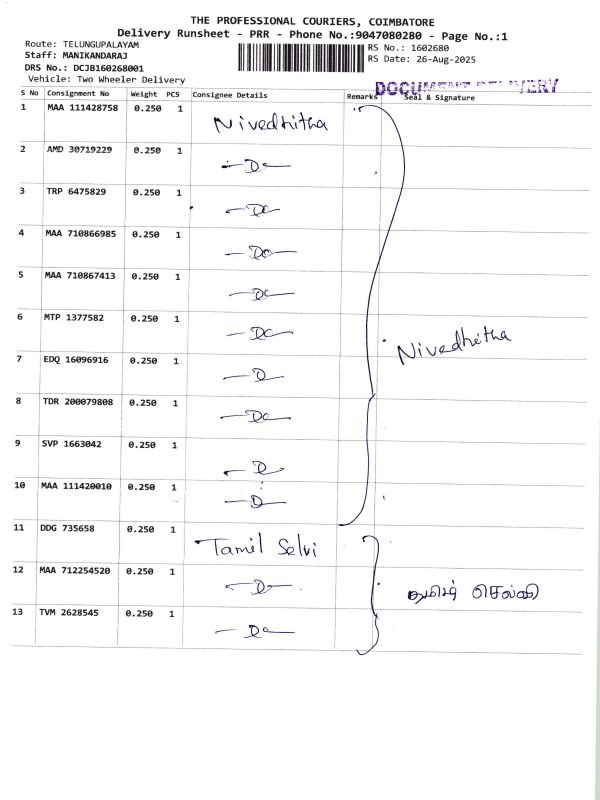 THE PROFESSIONAL COURIERS, COIMBATORE
Delivery Runsheet - PRR - Phone No.:9047080280 - Page No.:1
Route: TELUNGUPALAYAM
RS No.: 1602680
Staff: MANIKANDARAJ
RS Date: 26-Aug-2025
DRS No.: DCJB160268001
Vehicle: Two Wheeler Delivery
DOCUMENT DELIVERY
S No Consignment No Weight PCS Consignee Details Remarks Seal & Signature
1 MAA 111428758 0.250 1 Nivedhitha
2 AMD 30719229 0.250 1 —Do—
3 TRP 6475829 0.250 1 —Do—
4 MAA 710866985 0.250 1 —Do—
5 MAA 710867413 0.250 1 —Do—
6 MTP 1377582 0.250 1 —Do—
Nivedhitha
7 EDQ 16096916 0.250 1 —D—
8 TDR 200079808 0.250 1 —Do—
9 SVP 1663042 0.250 1 —D—
10 MAA 111420010 0.250 1 —D—
11 DDG 735658 0.250 1 Tamil Selvi
12 MAA 712254520 0.250 1 —D— தமிழ் செல்வி
13 TVM 2628545 0.250 1 —Do—